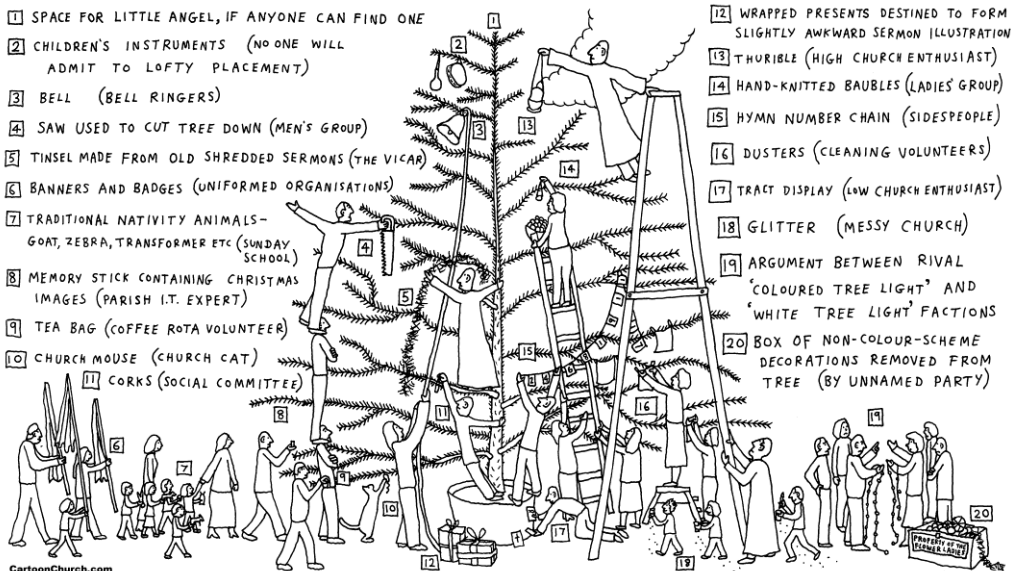 1 SPACE FOR LITTLE ANGEL, IF ANYONE CAN FIND ONE
2 CHILDREN'S INSTRUMENTS (NO ONE WILL
ADMIT TO LOFTY PLACEMENT)
3 BELL (BELL RINGERS)
4 SAW USED TO CUT TREE DOWN (MEN'S GROUP)
5 TINSEL MADE FROM OLD SHREDDED SERMONS (THE VICAR)
6 BANNERS AND BADGES (UNIFORMED ORGANISATIONS)
7 TRADITIONAL NATIVITY ANIMALS-
GOAT, ZEBRA, TRANSFORMER ETC (SUNDAY
SCHOOL)
8 MEMORY STICK CONTAINING CHRISTMAS
IMAGES (PARISH I.T. EXPERT)
9 TEA BAG (COFFEE ROTA VOLUNTEER)
10 CHURCH MOUSE (CHURCH CAT)
11 CORKS (SOCIAL COMMITTEE)
12 WRAPPED PRESENTS DESTINED TO FORM
SLIGHTLY AWKWARD SERMON ILLUSTRATION
13 THURIBLE (HIGH CHURCH ENTHUSIAST)
14 HAND-KNITTED BAUBLES (LADIES' GROUP)
15 HYMN NUMBER CHAIN (SIDESPEOPLE)
16 DUSTERS (CLEANING VOLUNTEERS)
17 TRACT DISPLAY (LOW CHURCH ENTHUSIAST)
18 GLITTER (MESSY CHURCH)
19 ARGUMENT BETWEEN RIVAL
'COLOURED TREE LIGHT' AND
'WHITE TREE LIGHT' FACTIONS
20 BOX OF NON-COLOUR-SCHEME
DECORATIONS REMOVED FROM
TREE (BY UNNAMED PARTY)
1
2
3
13
14
4
5
15
11
16
8
6
7
9
10
17
12
18
19
20
PROPERTY OF THE
FLOWER LADIES
CartoonChurch.com